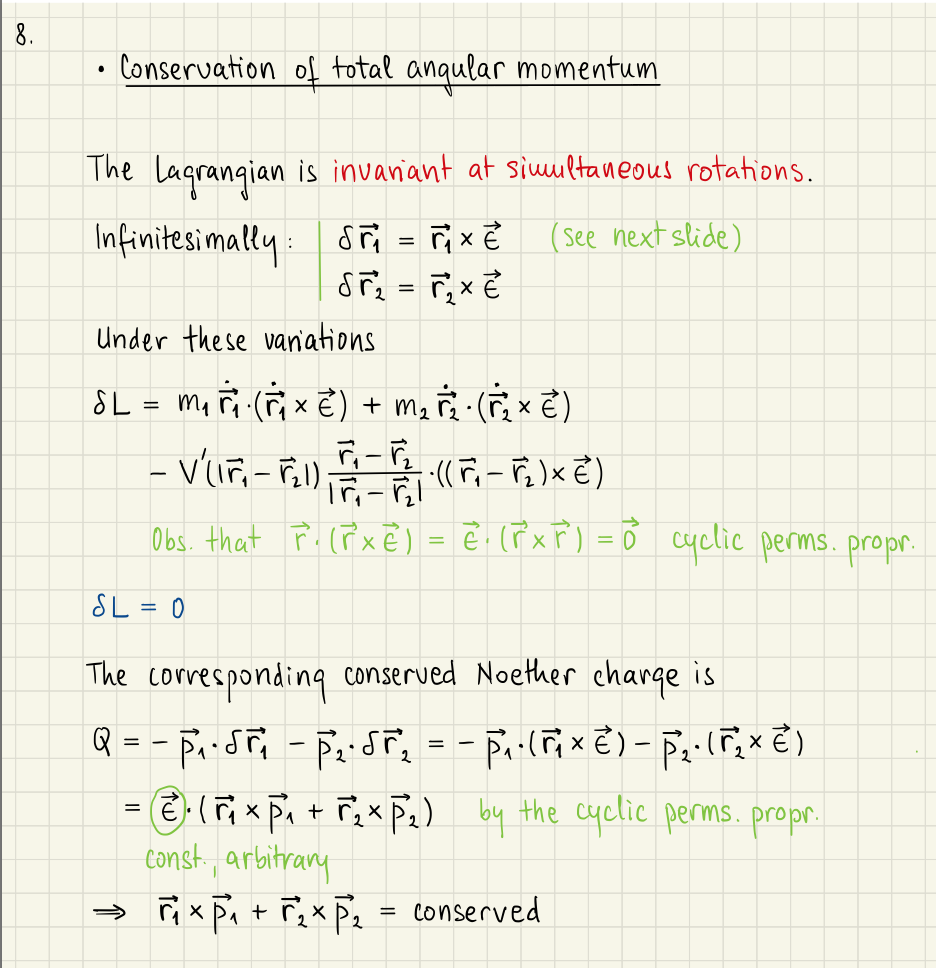 8.
• Conservation of total angular momentum
The Lagrangian is invariant at simultaneous rotations.
Infinitesimally: | δr⃗₁ = r⃗₁ × ϵ⃗ (see next slide)
δr⃗₂ = r⃗₂ × ϵ⃗
Under these variations
δL = m₁ ṙ⃗₁·(ṙ⃗₁ × ϵ⃗) + m₂ ṙ⃗₂·(ṙ⃗₂ × ϵ⃗)
− V′(|r⃗₁ − r⃗₂|) (r⃗₁ − r⃗₂)/|r⃗₁ − r⃗₂| ·((r⃗₁ − r⃗₂) × ϵ⃗)
Obs. that r⃗·(r⃗ × ϵ⃗) = ϵ⃗·(r⃗ × r⃗) = 0⃗ cyclic perms. propr.
δL = 0
The corresponding conserved Noether charge is
Q = − p⃗₁·δr⃗₁ − p⃗₂·δr⃗₂ = − p⃗₁·(r⃗₁ × ϵ⃗) − p⃗₂·(r⃗₂ × ϵ⃗)
= ϵ⃗·(r⃗₁ × p⃗₁ + r⃗₂ × p⃗₂) by the cyclic perms. propr.
const., arbitrary
⇒ r⃗₁ × p⃗₁ + r⃗₂ × p⃗₂ = conserved